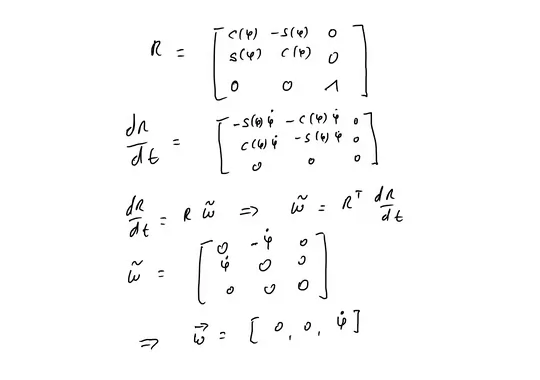 R = [ C(φ) -S(φ) 0
S(φ) C(φ) 0
0 0 1 ]
dR/dt = [ -S(φ)φ̇ -C(φ)φ̇ 0
C(φ)φ̇ -S(φ)φ̇ 0
0 0 0 ]
dR/dt = R ω̃ => ω̃ = Rᵀ dR/dt
ω̃ = [ 0 -φ̇ 0
φ̇ 0 0
0 0 0 ]
=> ω⃗ = [ 0, 0, φ̇ ]